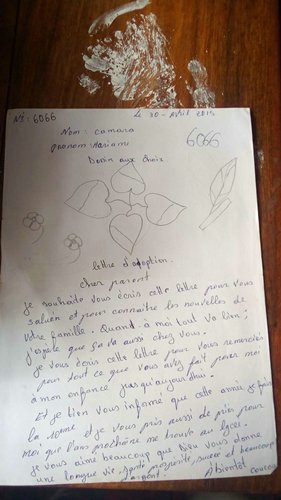 N°: 6066
Le 30 - Avril 2015
Nom: camara
6066
prenom Mariame
Dessin aux choix
lettre d'adoption.
cher parent
je souhaite vous écris cette lettre pour vous
saluer et pour connaître les nouvelles de
votre famille. Quand à moi tout va bien;
j'espère que ça va aussi chez vous.
je vous écris cette lettre pour vous remerciés
pour tout ce que vous avez fait pour moi
à mon enfance jusqu'aujourd'hui.
Et je bien vous informé que cette année je fais
la 10ème et je vous pries aussi de prier pour
moi que l'ans prochaine me trouve au lycée.
je vous aime beaucoup que Dieu vous donne
une longue vie, santé prosperité, succee et beaucoup
d'argent.
Abientot coucou